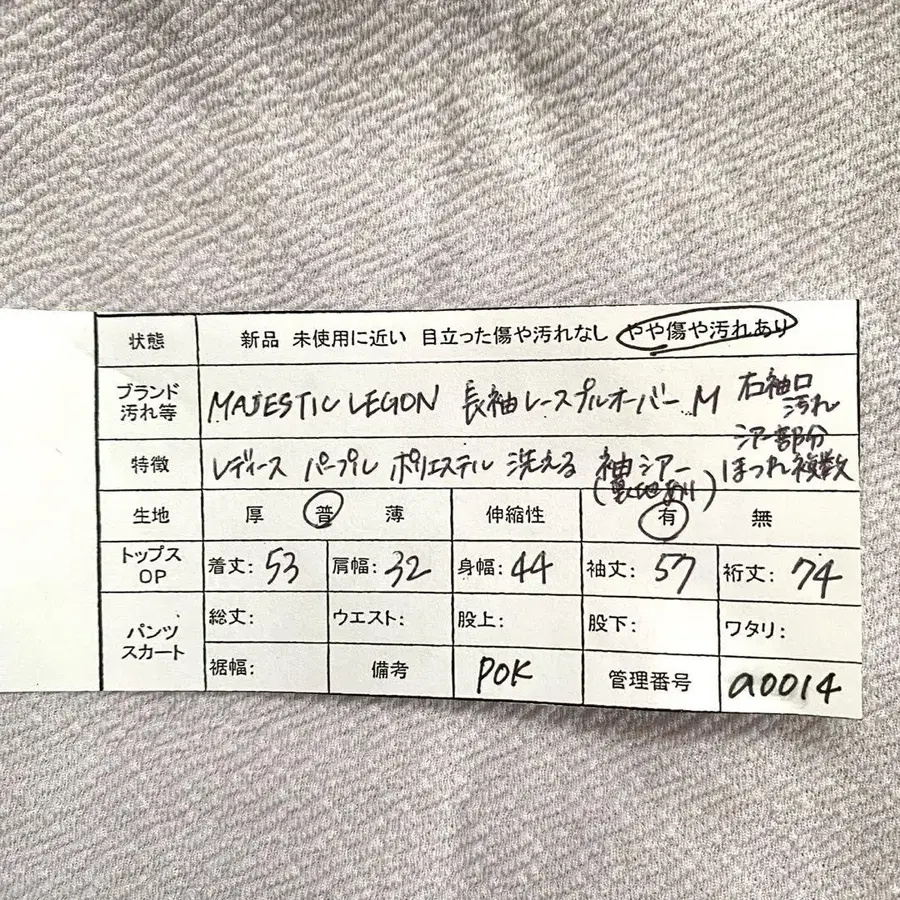 状態 新品 未使用に近い 目立った傷や汚れなし やや傷や汚れあり
ブランド 汚れ等 MAJESTIC LEGON 長袖レースプルオーバー M 右袖口 汚れ
シアー部分
特徴 レディース パープル ポリエステル 洗える 袖シアー ほつれ複数
(裏地あり)
生地 厚 普 薄 伸縮性 有 無
トップス OP 着丈: 53 肩幅: 32 身幅: 44 袖丈: 57 裄丈: 74
パンツ スカート 総丈: ウエスト: 股上: 股下: ワタリ:
裾幅: 備考 POK 管理番号 a0014